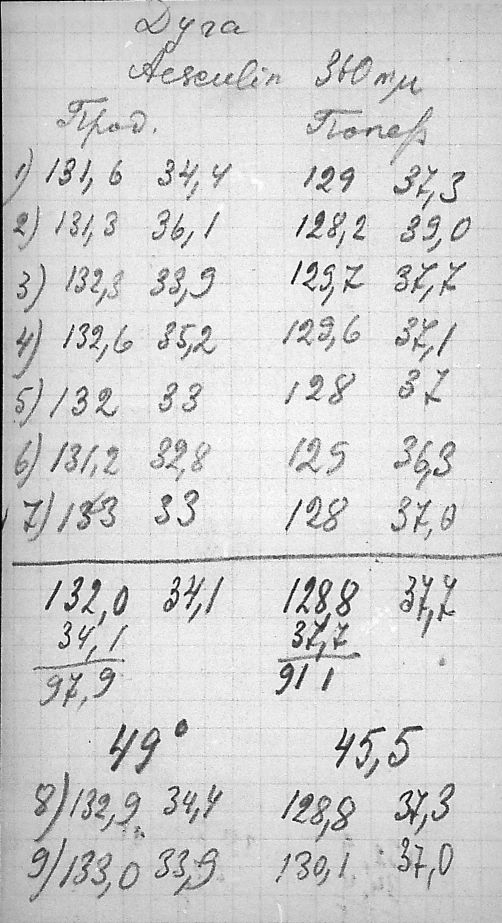 Дуга
Aesculin 360 mμ
Прод. Попер
1) 131,6 34,4 129 37,3
2) 131,3 36,1 128,2 39,0
3) 132,3 33,9 129,7 37,7
4) 132,6 35,2 129,6 37,1
5) 132 33 128 37
6) 131,2 32,8 125 36,3
7) 133 33 128 37,0
132,0 34,1 128,8 37,7
34,1 37,7
97,9 91 1
49° 45,5
8) 132,9 34,4 128,8 37,3
9) 133,0 33,9 130,1 37,0